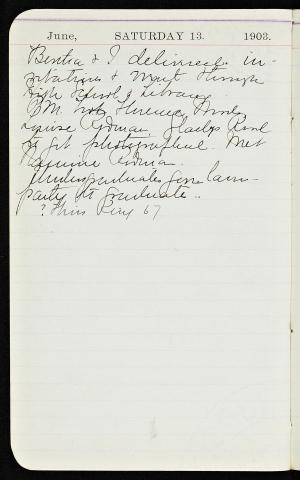 June, SATURDAY 13. 1903.
Bertha & I delivered in-
vitations & went through
High School & Library.
P.M. Took Florence,
Louise Redman, Gladys
to get photographed. Met
Redman.
Undergraduates gave lawn-
party to graduates.
? This Day 67